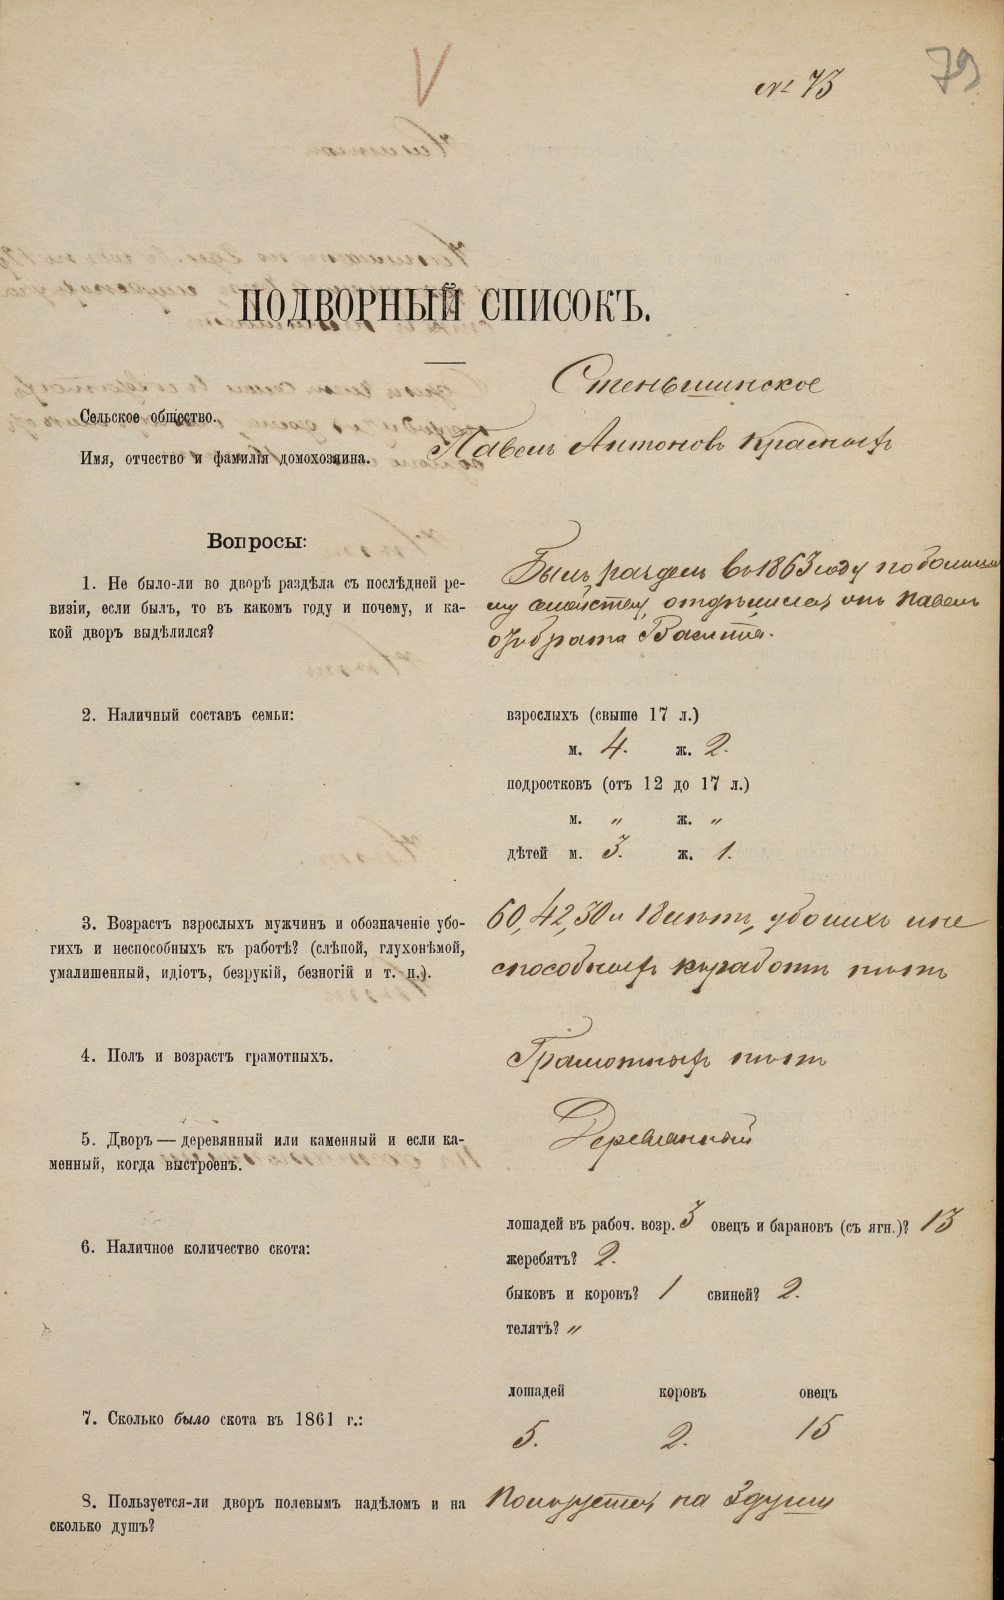 № 73
79
ПОДВОРНЫЙ СПИСОКЪ.
Стеньшинское
Сельское общество.
Павелъ Антоновъ Красныхъ
Имя, отчество и фамилія домохозяина.
Вопросы:
1. Не было-ли во дворѣ раздѣла съ послѣдней ре-
визіи, если былъ, то въ какомъ году и почему, и ка-
кой дворъ выдѣлился?
Былъ раздѣлъ въ 1863 году по больша
му семейству, отдѣлился онъ Павелъ
отъ брата
2. Наличный составъ семьи:
взрослыхъ (свыше 17 л.)
м. 4. ж. 2.
подростковъ (отъ 12 до 17 л.)
м. „ ж. „
дѣтей м. 3. ж. 1.
3. Возрастъ взрослыхъ мужчинъ и обозначеніе убо-
гихъ и неспособныхъ къ работѣ? (слѣпой, глухонѣмой,
умалишенный, идіотъ, безрукій, безногій и т. п.).
60, 42, 30 и 18 лѣтъ, убогихъ и не
способныхъ къ работѣ нѣтъ
4. Полъ и возрастъ грамотныхъ.
Грамотныхъ нѣтъ
5. Дворъ — деревянный или каменный и если ка-
менный, когда выстроенъ.
Деревянный
6. Наличное количество скота:
лошадей въ рабоч. возр. 3 овецъ и барановъ (съ ягн.)? 13
жеребятъ? 2.
быковъ и коровъ? 1 свиней? 2.
телятъ? „
7. Сколько было скота въ 1861 г.:
лошадей коровъ овецъ
5. 2. 15
8. Пользуется-ли дворъ полевымъ надѣломъ и на
сколько душъ?
Пользуется, на 3 души